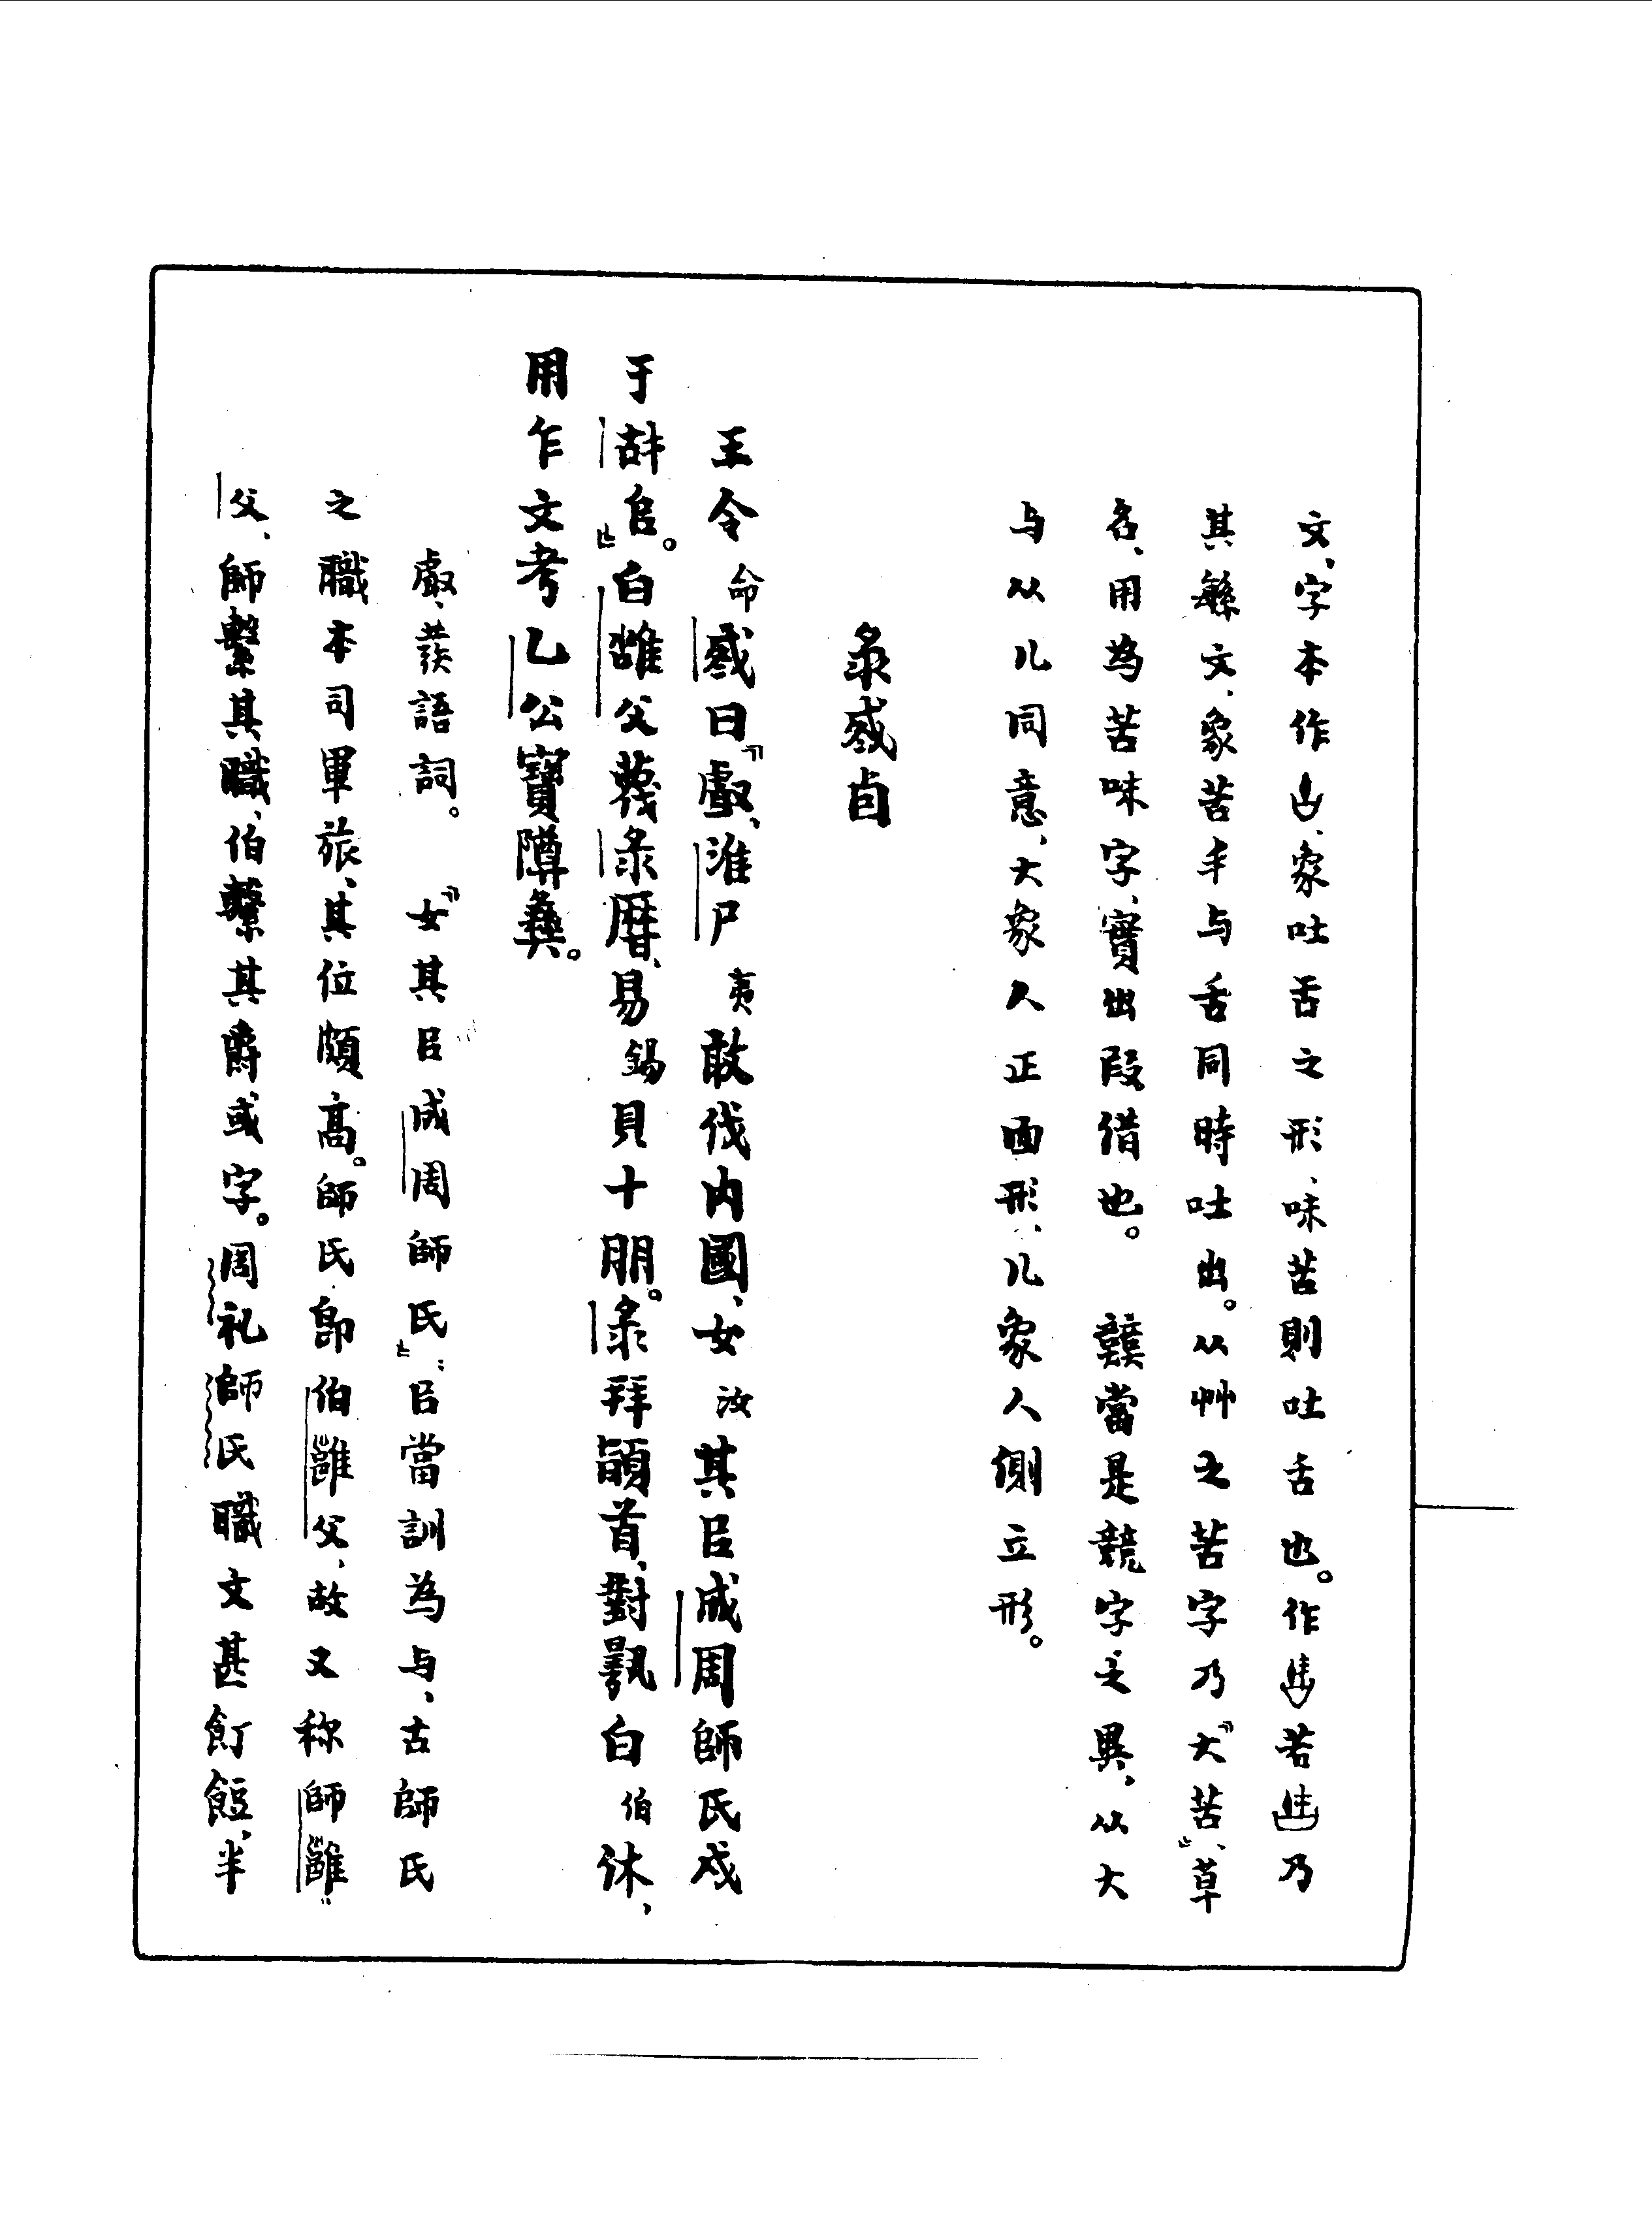 文、字本作、象吐舌之形、味苦則吐舌也。作若乃
其緐文、象苦丯与舌同時吐出。从艸之苦字乃『大苦』、草
名、用為苦味字、實出叚借也。　䶬當是競字之異、从大
与从儿同意、大象人正面形、儿象人側立形。
彔㦰卣
王令命㦰曰『䖒、淮尸夷敢伐內國、女汝其㠯成周師氏戍
于𠂤。』白雝父蔑彔曆、易錫貝十朋。彔拜䭫首、對白伯休、
用乍文考乙公寶䵼彝。
䖒、發語詞。『女其㠯成周師氏』：㠯當訓為与、古師氏
之職本司軍旅、其位頗高。師氏即伯雝父、故又称師雝
父、師繫其職、伯繫其爵或字。周礼師氏職文甚飣餖、半